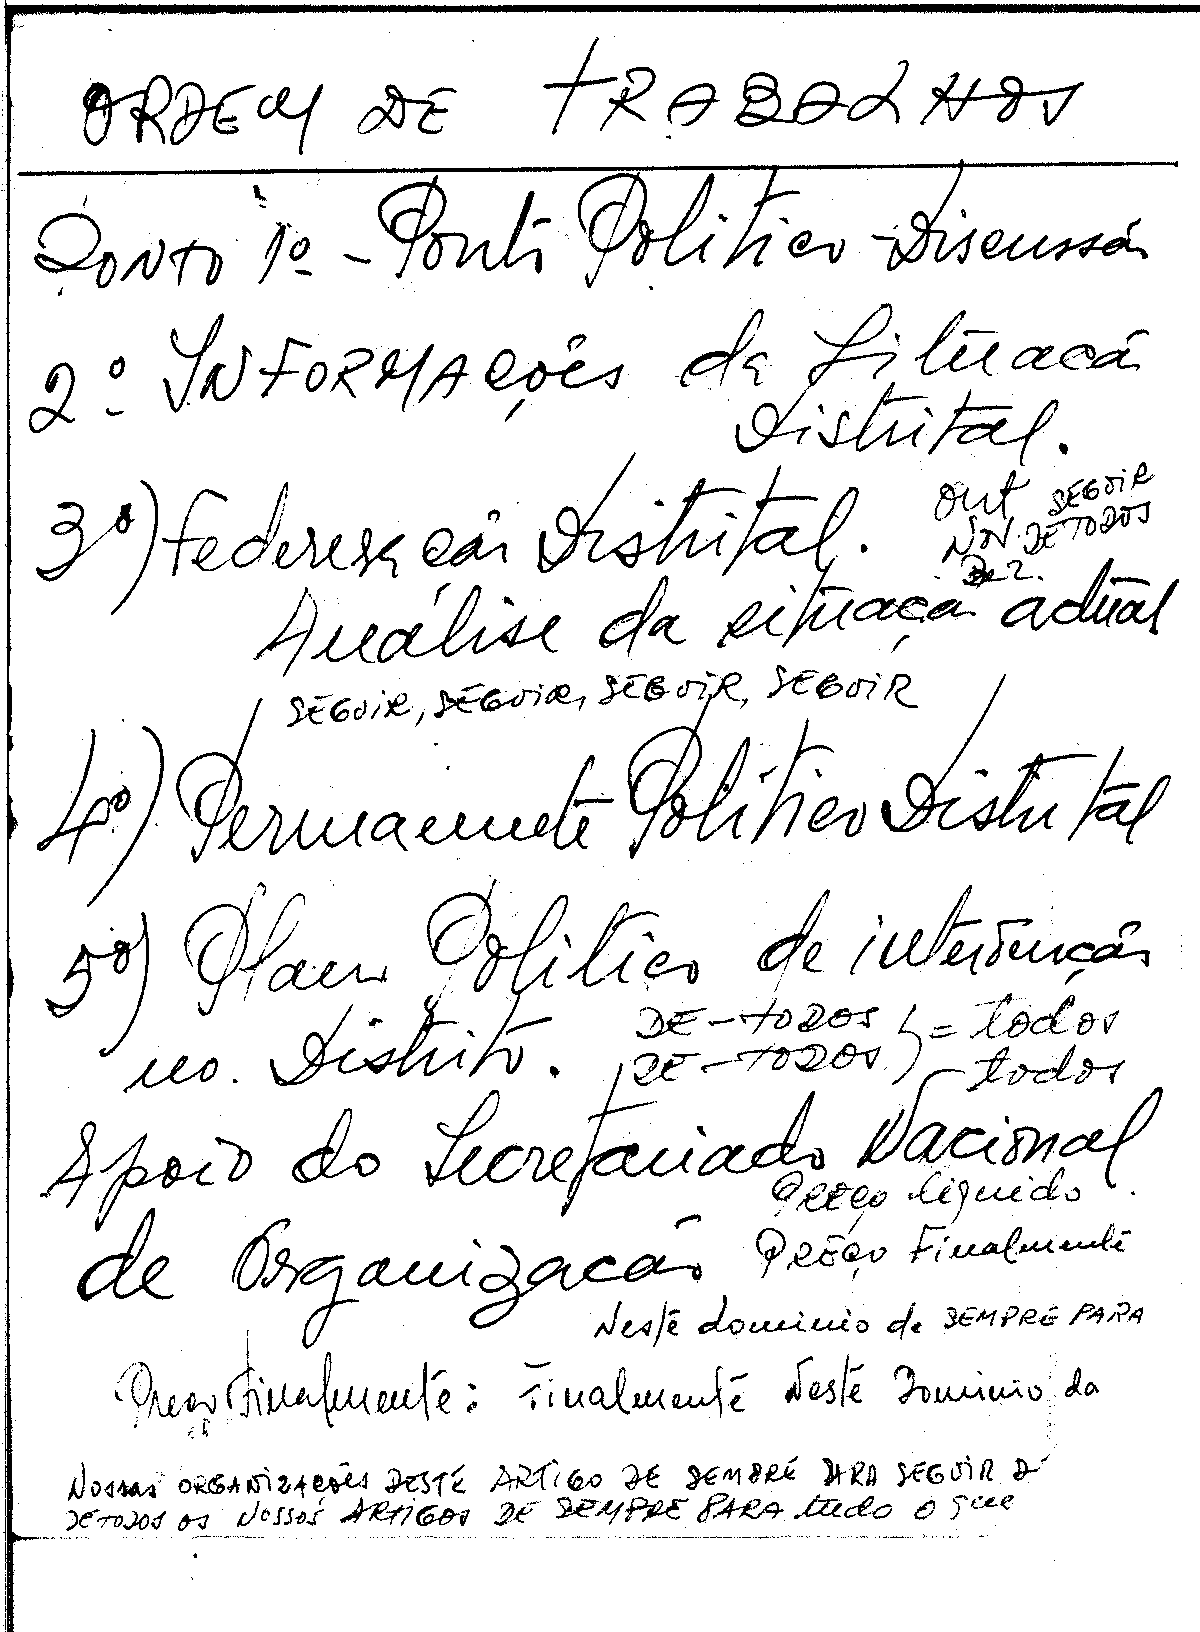 ORDEM DE TRABALHOS
PONTO 1º - Ponto Politico - Discussão
2º INFORMAÇÕES da Situacão
Distrital.
3º) Federeração Distrital.
Out SEGUIR
NOV. DE TODOS
De 2.
Análise da situação actual
SEGUIR, SEGUIR, SEGUIR, SEGUIR
4º) Permanente Politico Distrital
5º) Plano Politico de intervenção
no. Distrito.
DE-TODOS } = todos
DE-TODOS } todos
Apoio do Secretariado Nacional
Preço liquido
de Organizacão
Preço Finalmente
Neste dominio de SEMPRE PARA
Preço Finalmente: Finalmente Neste Dominio da
NOSSAS ORGANIZAÇÕES DESTE ARTIGO DE SEMPRE PARA SEGUIR D
DETODOS OS NOSSOS ARTIGOS DE SEMPRE PARA tudo o que